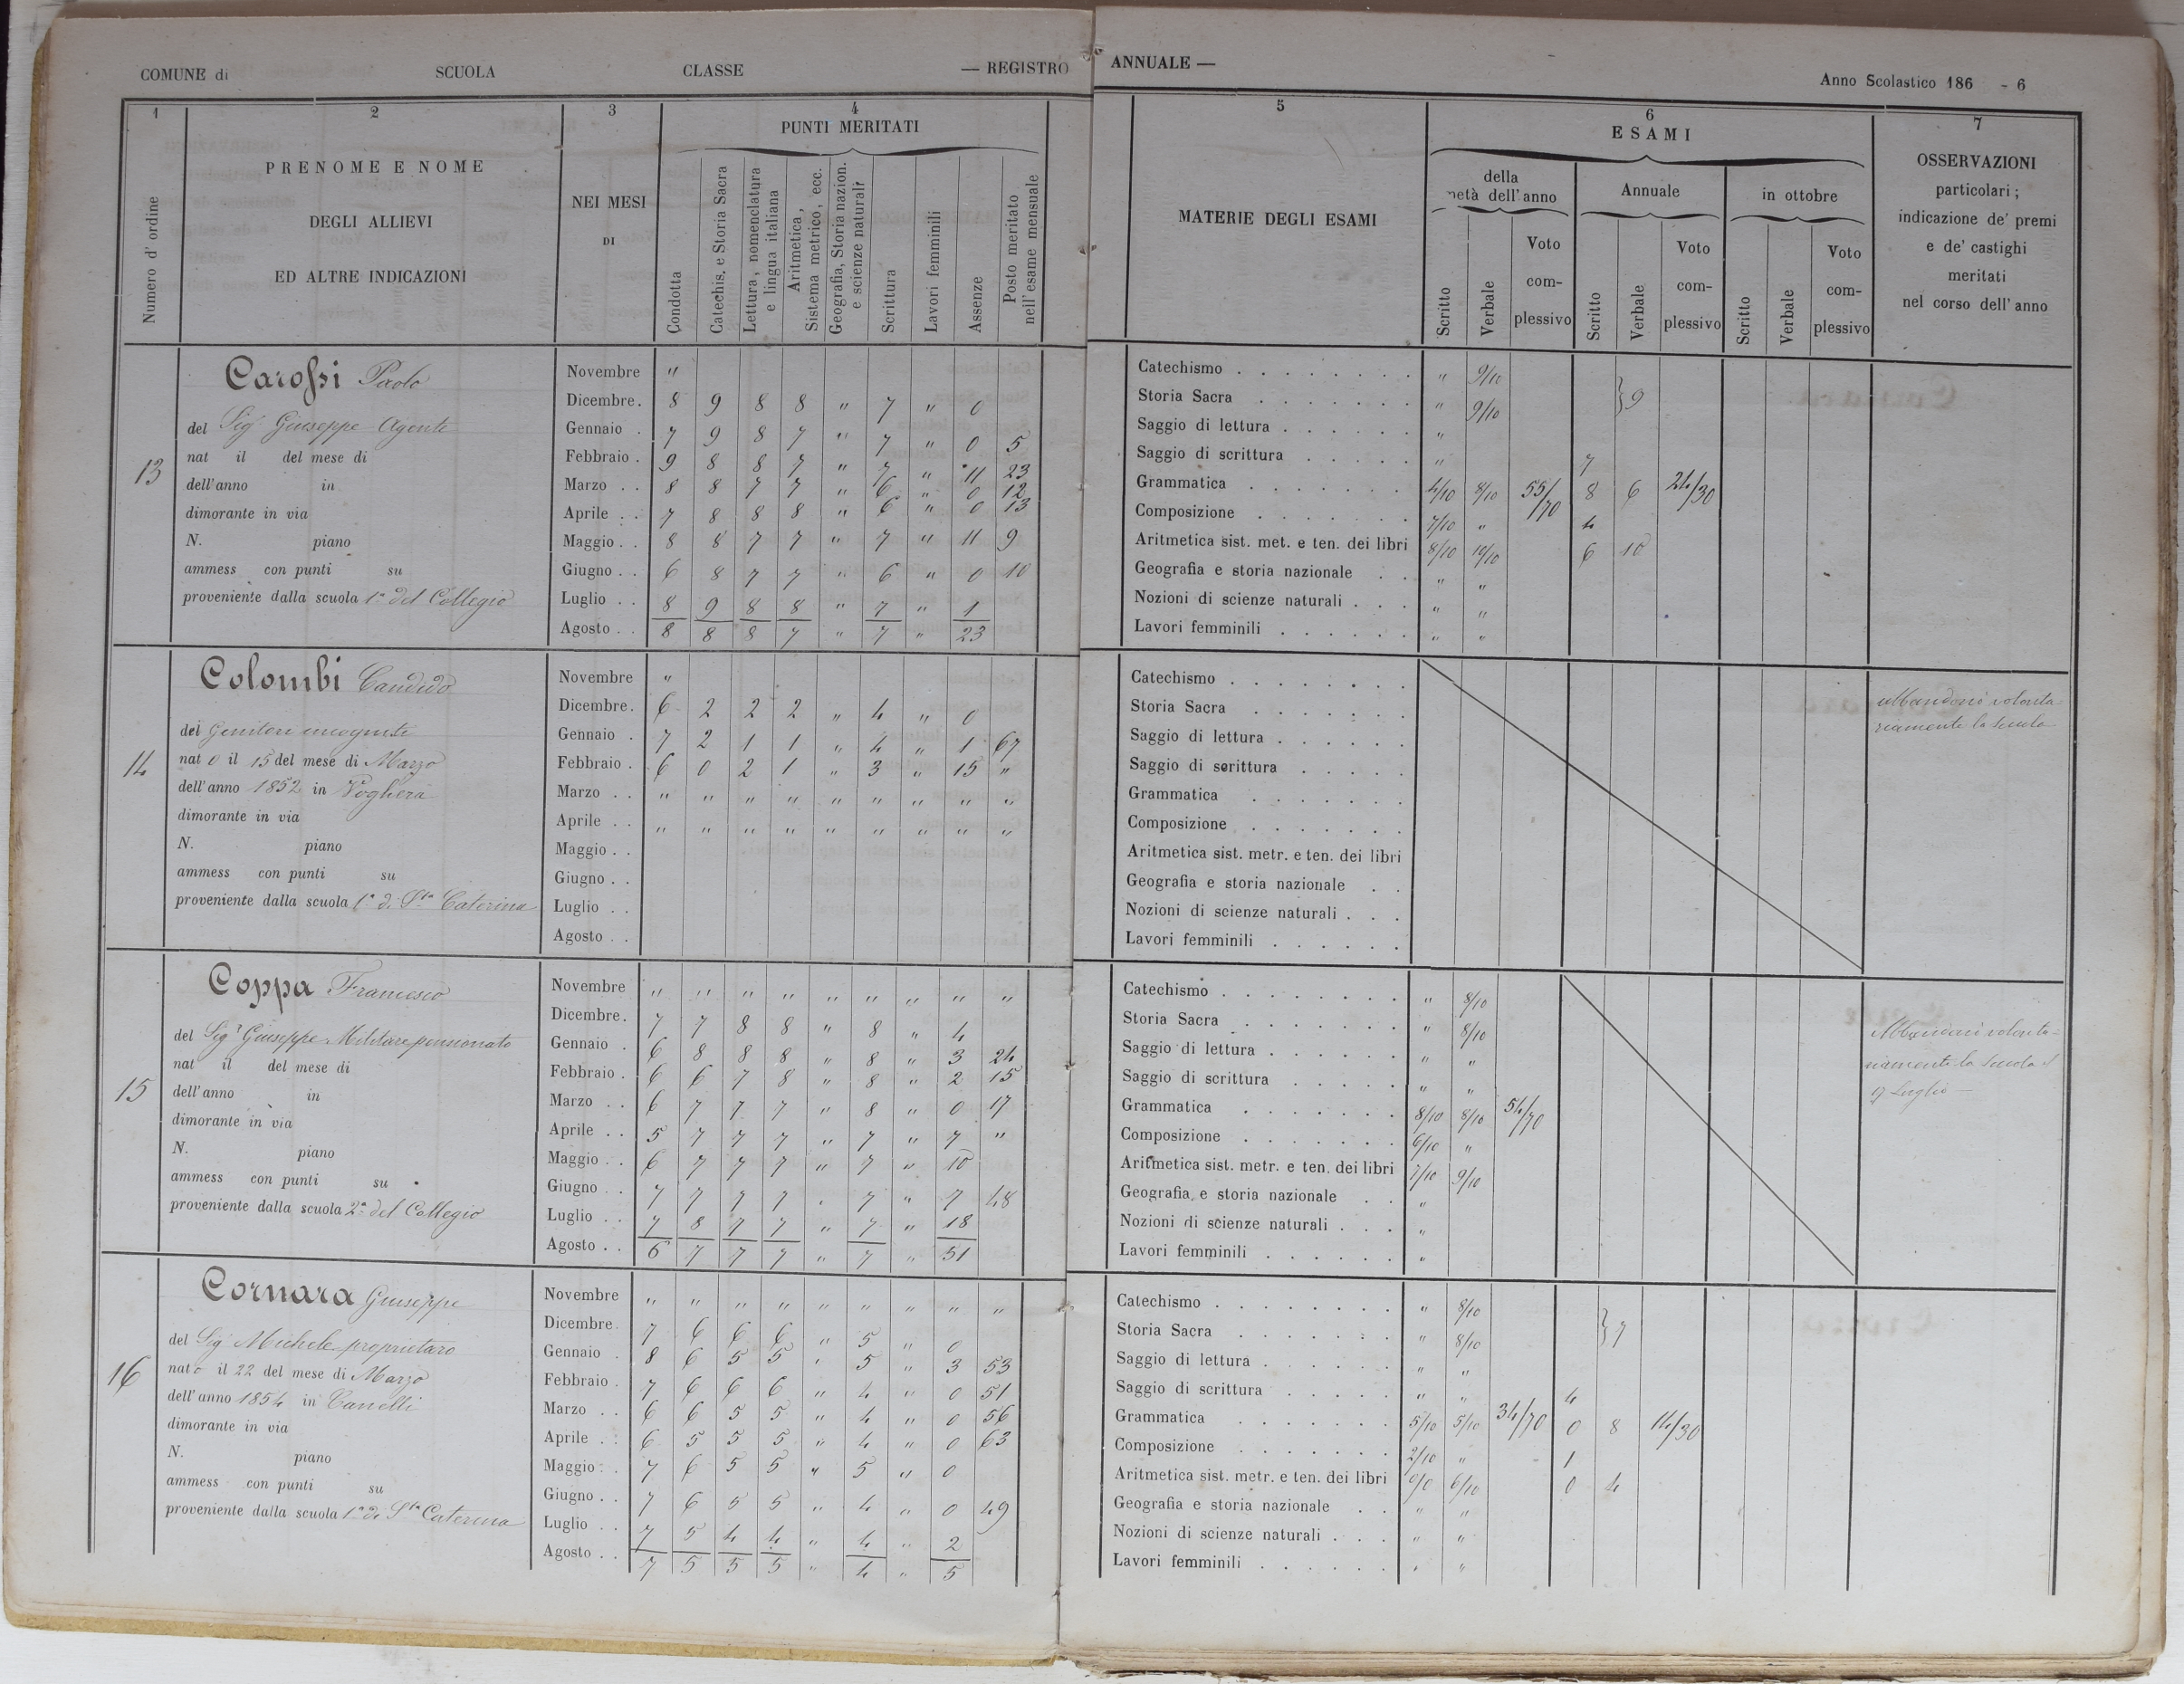 COMUNE di SCUOLA CLASSE — REGISTRO ANNUALE — Anno Scolastico 186 - 6
1 2 3 4 5 6 7
Numero d' ordine
PRENOME E NOME
DEGLI ALLIEVI
ED ALTRE INDICAZIONI
NEI MESI
DI
PUNTI MERITATI
Condotta
Catechis. e Storia Sacra
Lettura, nomenclatura
e lingua italiana
Aritmetica,
Sistema metrico, ecc.
Geografia, Storia nazion.
e scienze naturali
Scrittura
Lavori femminili
Assenze
Posto meritato
nell'esame mensuale
MATERIE DEGLI ESAMI
ESAMI
della
metà dell'anno
Scritto
Verbale
Voto
com-
plessivo
Annuale
Scritto
Verbale
Voto
com-
plessivo
in ottobre
Scritto
Verbale
Voto
com-
plessivo
OSSERVAZIONI
particolari;
indicazione de' premi
e de' castighi
meritati
nel corso dell'anno
13
Carossi Paolo
del Sigr Giuseppe Agente
nat il del mese di
dell'anno in
dimorante in via
N. piano
ammess con punti su
proveniente dalla scuola 1a del Collegio
Novembre "
Dicembre. 8 9 8 8 " 7 " 0
Gennaio . 7 9 8 7 " 7 " 0 5
Febbraio . 9 8 8 7 " 7 " 11 23
Marzo . . 8 8 7 7 " 6 " 0 12
Aprile . . 7 8 8 8 " 6 " 0 13
Maggio . . 8 8 7 7 " 7 " 11 9
Giugno . . 6 8 7 7 " 6 " 0 10
Luglio . . 8 9 8 8 " 7 " 1
Agosto . . 8 8 8 7 " 7 " 23
Catechismo " 9/10
Storia Sacra " 9/10 } 9
Saggio di lettura "
Saggio di scrittura " 7
Grammatica 4/10 8/10 55/70 8 6 24/30
Composizione 7/10 " 4
Aritmetica sist. met. e ten. dei libri 8/10 10/10 6 10
Geografia e storia nazionale " "
Nozioni di scienze naturali " "
Lavori femminili " "
14
Colombi Candido
dei Genitori incogniti
nat o il 15 del mese di Marzo
dell'anno 1852 in Voghera
dimorante in via
N. piano
ammess con punti su
proveniente dalla scuola 1a di Sta Caterina
Novembre "
Dicembre. 6 2 2 2 " 4 " 0
Gennaio . 7 2 1 1 " 4 " 1 67
Febbraio . 6 0 2 1 " 3 " 15 "
Marzo . . " " " " " " " " "
Aprile . . " " " " " " " " "
Maggio . .
Giugno . .
Luglio . .
Agosto . .
Catechismo
Storia Sacra
Saggio di lettura
Saggio di scrittura
Grammatica
Composizione
Aritmetica sist. metr. e ten. dei libri
Geografia e storia nazionale
Nozioni di scienze naturali
Lavori femminili
Abbandonò volonta
riamente la scuola
15
Coppa Francesco
del Sigr Giuseppe Militare pensionato
nat il del mese di
dell'anno in
dimorante in via
N. piano
ammess con punti su
proveniente dalla scuola 2a del Collegio
Novembre " " " " " " " " "
Dicembre. 7 7 8 8 " 8 " 4
Gennaio . 6 8 8 8 " 8 " 3 24
Febbraio . 6 6 7 8 " 8 " 2 15
Marzo . . 6 7 7 7 " 8 " 0 17
Aprile . . 5 7 7 7 " 7 " 7 "
Maggio . . 6 7 7 7 " 7 " 10
Giugno . . 7 7 7 7 " 7 " 7 48
Luglio . . 7 8 7 7 " 7 " 18
Agosto . . 6 7 7 7 " 7 " 51
Catechismo " 8/10
Storia Sacra " 8/10
Saggio di lettura " "
Saggio di scrittura " "
Grammatica 8/10 8/10 54/70
Composizione 6/10 "
Aritmetica sist. metr. e ten. dei libri 7/10 9/10
Geografia e storia nazionale "
Nozioni di scienze naturali "
Lavori femminili "
Abbandonò volonta-
riamente la scuola il
9 Luglio —
16
Cornara Giuseppe
del Sigr Michele proprietaro
nat o il 22 del mese di Marzo
dell'anno 1854 in Canelli
dimorante in via
N. piano
ammess con punti su
proveniente dalla scuola 1a di Sta Caterina
Novembre " " " " " " " " "
Dicembre 7 6 6 6 " 5 " 0
Gennaio . 8 6 5 5 " 5 " 3 53
Febbraio . 7 6 6 6 " 4 " 0 51
Marzo . . 6 6 5 5 " 4 " 0 56
Aprile . . 6 5 5 5 " 4 " 0 63
Maggio . . 7 6 5 5 " 5 " 0
Giugno . . 7 6 5 5 " 4 " 0 49
Luglio . . 7 5 4 4 " 4 " 2
Agosto . . 7 5 5 5 " 4 " 5
Catechismo " 8/10
Storia Sacra " 8/10 } 7
Saggio di lettura " "
Saggio di scrittura " " 4
Grammatica 5/10 5/10 34/70 0 8 14/30
Composizione 2/10 " 1
Aritmetica sist. metr. e ten. dei libri 0/0 6/10 0 4
Geografia e storia nazionale " "
Nozioni di scienze naturali " "
Lavori femminili " "